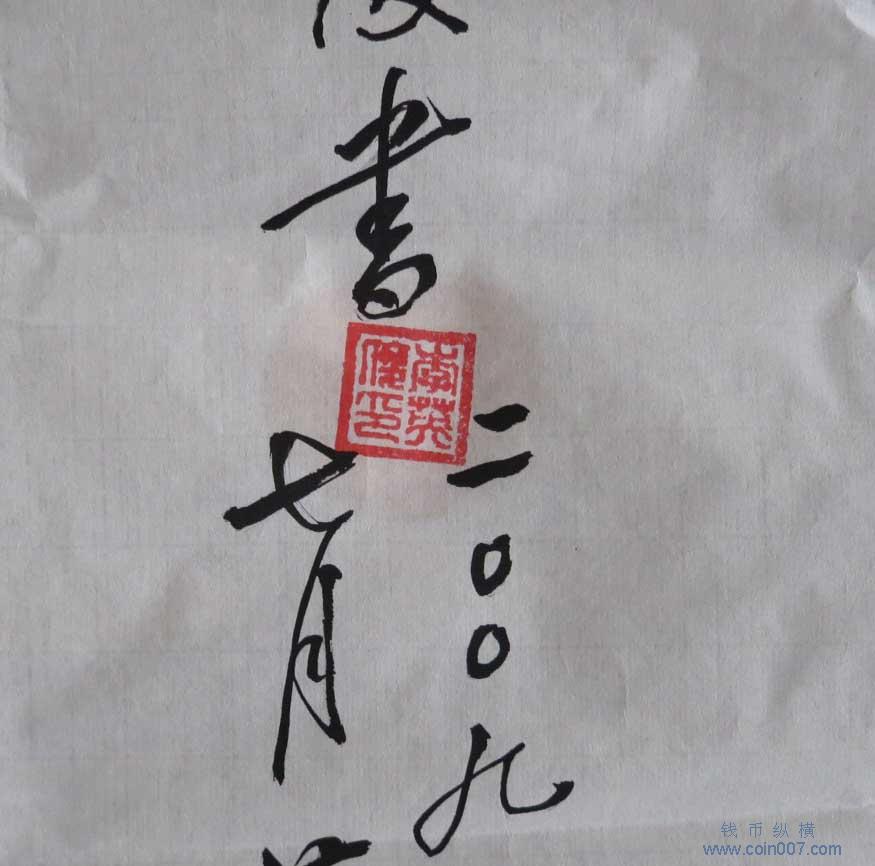 書
二〇〇九
七月
钱币纵横
www.coin007.com